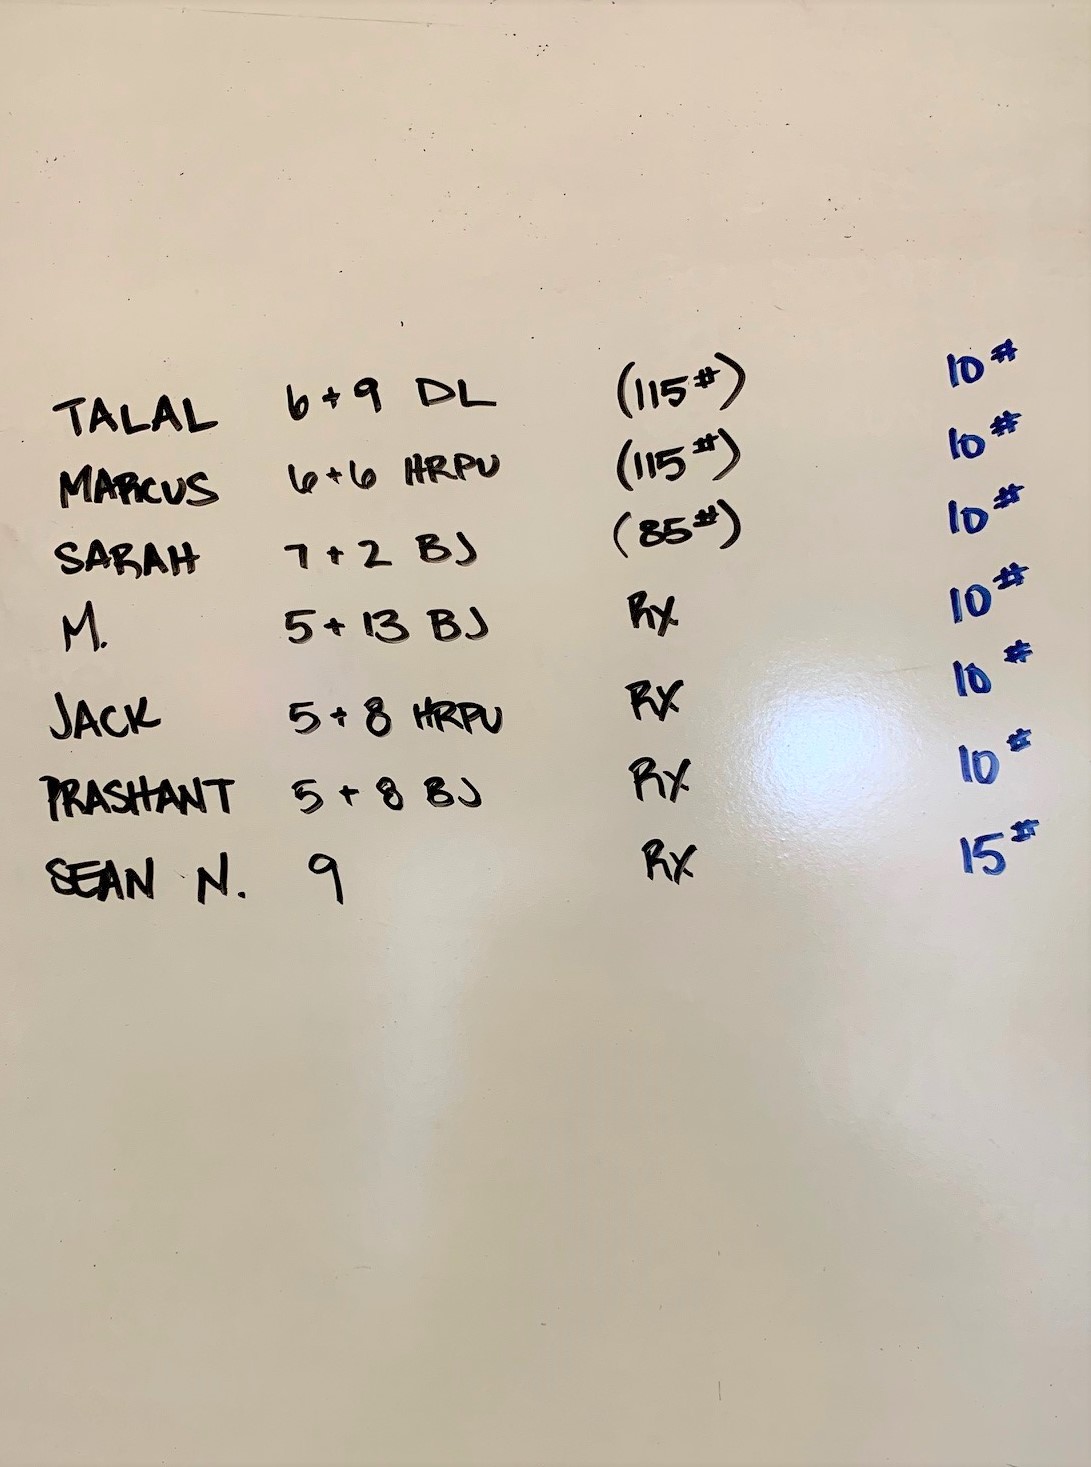 TALAL 6+9 DL (115#) 10#
MARCUS 6+6 HRPU (115#) 10#
SARAH 7+2 BJ (85#) 10#
M. 5+13 BJ RX 10#
JACK 5+8 HRPU RX 10#
PRASHANT 5+8 BJ RX 10#
SEAN N. 9 RX 15#